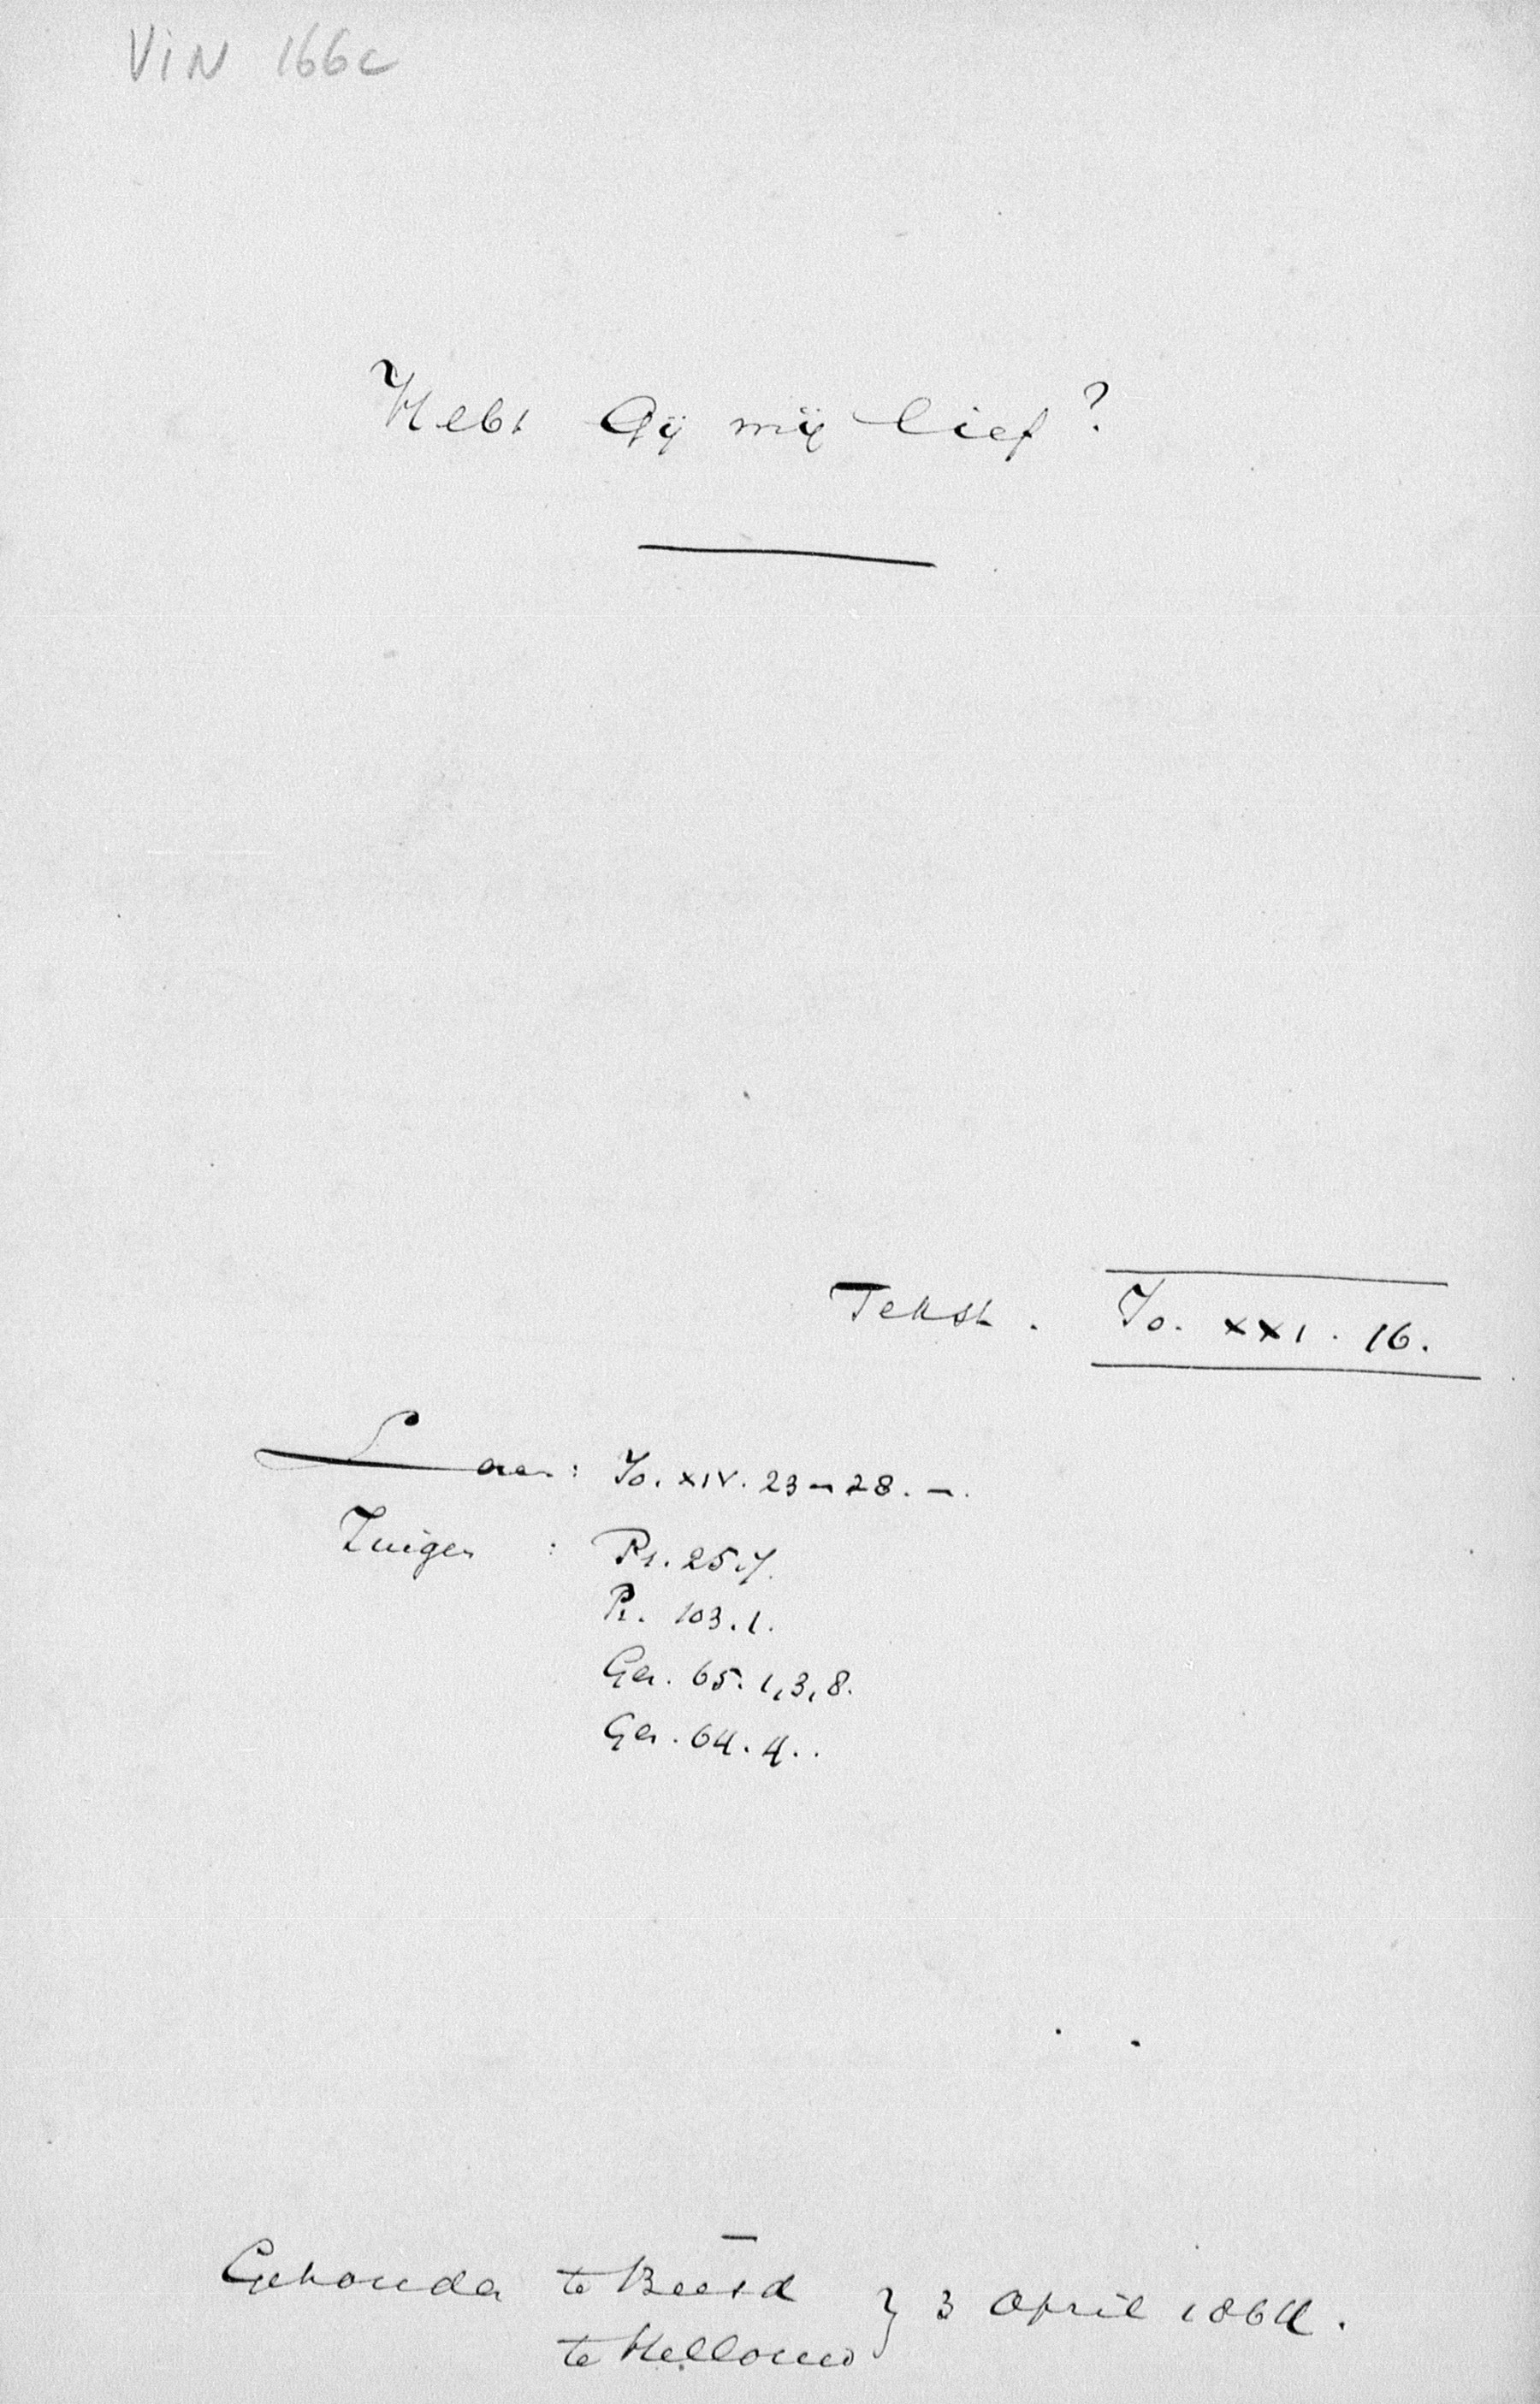 VIN 166c
Hebt Gij mij lief?
Tekst. Jo. XXI. 16.
Lezen: Jo. XIV. 23-28.-.
Zingen : Ps. 25.7.
Ps. 103.1.
Gez. 65. 1,3,8.
Gez. 64. 4..
Gehouden te Beesd } 3 April 1864.
te Hellouw